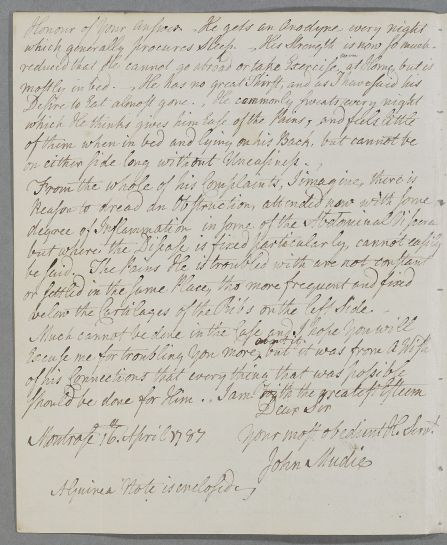 Honour of your answer. He gets an Anodyne every night
which generally procures Sleep. His Strength is now so much
reduced that He cannot go abroad or take Exercise, even at Home, but is
mostly in bed. He has no great Thirst, and as I have said his
Desire to Eat almost gone. He commonly sweats every night
which He thinks gives him Ease of the Pains, and feels little
of them when in bed and lying on his Back, but cannot be
on either side long without Uneasiness.
From the whole of his Complaints, I imagine, there is
Reason to dread an Obstruction, attended now with some
degree of Inflammation in some of the Abdominal Viscera
but where the Disease is fixed particularly, cannot easily
be said. The Pains He is troubled with are not constant
or settled in the same Place, tho more frequent and fixed
below the Cartilages of the Ribs on the left side.
Much cannot be done in the Case and I hope you will
Excuse me for troubling you more about it, but it was from a Wish
of his Connections that every thing that was possible
should be done for Him. I am with the greatest Esteem
Dear Sir
Montrose 16th April 1787 your most obedient He Servt
John Mudie
A Guinea Note is enclosed